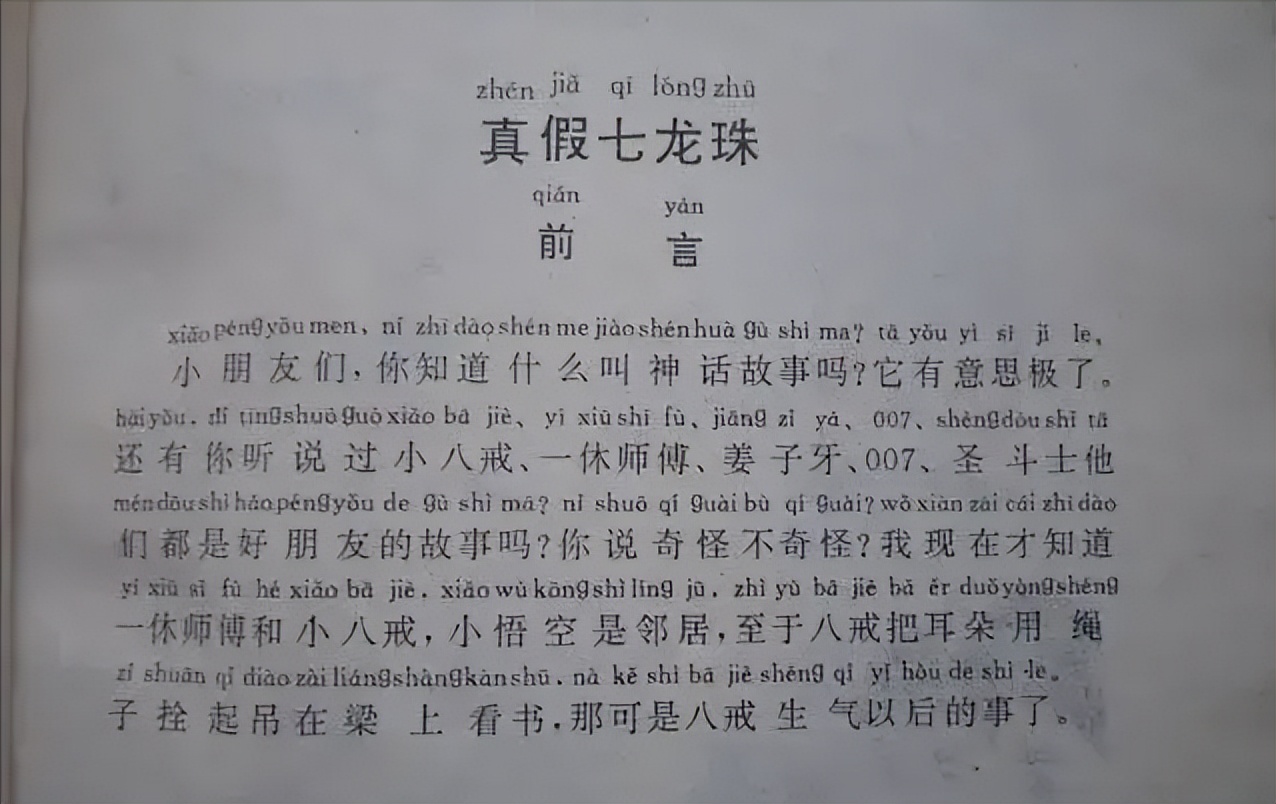 zhēn jiǎ qī lóng zhū
真假七龙珠
qián yán
前 言
xiǎo péng yǒu men，nǐ zhī dào shén me jiào shén huà gù shì ma？tā yǒu yì si jí le。
小朋友们，你知道什么叫神话故事吗？它有意思极了。
hái yǒu．nǐ tīng shuō guò xiǎo bā jiè、yī xiū shī fù、jiāng zǐ yá、007、shèng dòu shì tā
还有你听说过小八戒、一休师傅、姜子牙、007、圣斗士他
mén dōu shì hǎo péng yǒu de gù shì mā？nǐ shuō qí guài bù qí guài？wǒ xiàn zài cái zhī dào
们都是好朋友的故事吗？你说奇怪不奇怪？我现在才知道
yī xiū sī fù hé xiǎo bā jiè．xiǎo wù kōng shì lín jū．zhì yù bā jiè bǎ ěr duǒ yòng shéng
一休师傅和小八戒，小悟空是邻居，至于八戒把耳朵用绳
zǐ shuān qǐ diào zài liáng shàng kàn shū．nà kě shì bā jiè shēng qì yǐ hòu de shì le。
子拴起吊在梁上看书．那可是八戒生气以后的事了。